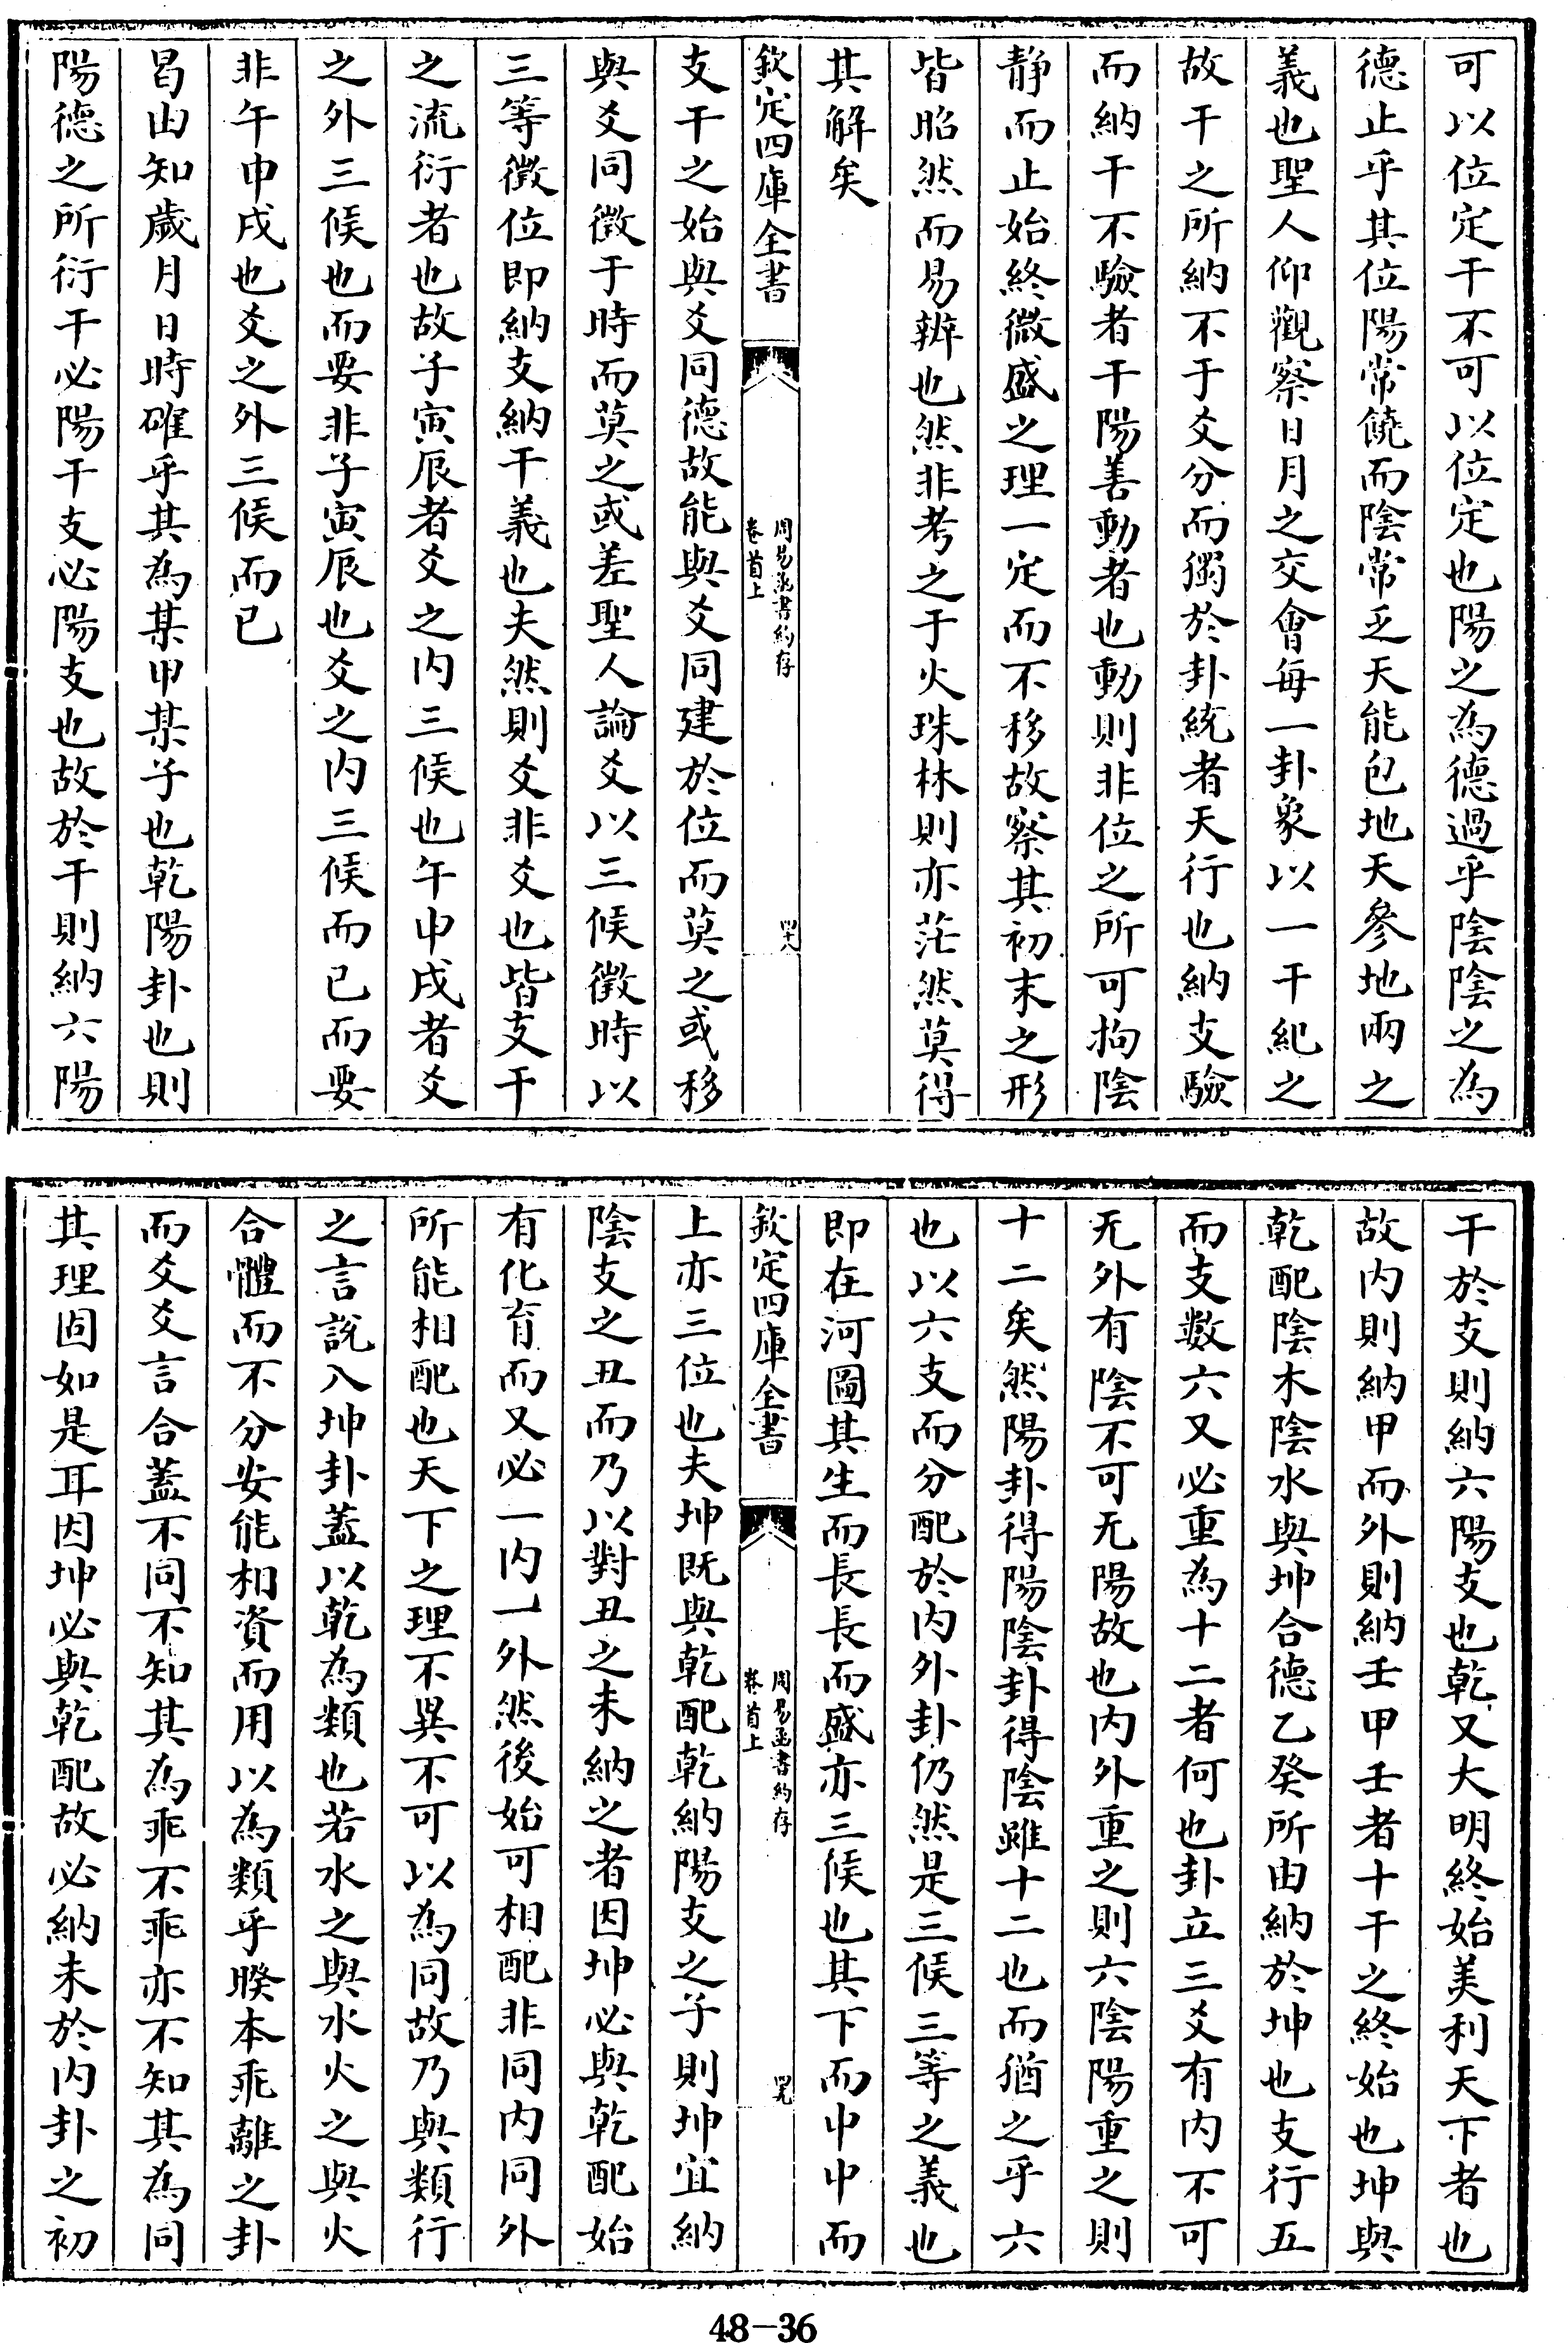 可以位定干不可以位定也陽之為德過乎陰陰之為
德止乎其位陽常饒而陰常乏天能包地天參地兩之
義也聖人仰觀察日月之交會每一卦象以一干紀之
故干之所納不于爻分而獨於卦統者天行也納支驗
而納干不驗者干陽善動者也動則非位之所可拘陰
靜而止始終微盛之理一定而不移故察其初末之形
皆昭然而易辨也然非考之于火珠林則亦茫然莫得
其解矣
欽定四庫全書
周易函書約存
卷首上
四十八
支干之始與爻同德故能與爻同建於位而莫之或移
與爻同徵于時而莫之或差聖人論爻以三候徵時以
三等徵位即納支納干義也夫然則爻非爻也皆支干
之流衍者也故子寅辰者爻之內三候也午申戌者爻
之外三候也而要非子寅辰也爻之內三候而已而要
非午申戌也爻之外三候而已
曷由知歲月日時確乎其為某甲某子也乾陽卦也則
陽德之所衍干必陽干支必陽支也故於干則納六陽
干於支則納六陽支也乾又大明終始美利天下者也
故內則納甲而外則納壬甲壬者十干之終始也坤與
乾配陰木陰水與坤合德乙癸所由納於坤也支行五
而支數六又必重為十二者何也卦立三爻有內不可
无外有陰不可无陽故也內外重之則六陰陽重之則
十二矣然陽卦得陽陰卦得陰雖十二也而猶之乎六
也以六支而分配於內外卦仍然是三候三等之義也
即在河圖其生而長長而盛亦三候也其下而中中而
欽定四庫全書
周易函書約存
卷首上
四十九
上亦三位也夫坤既與乾配乾納陽支之子則坤宜納
陰支之丑而乃以對丑之未納之者因坤必與乾配始
有化育而又必一內一外然後始可相配非同內同外
所能相配也天下之理不異不可以為同故乃與類行
之言說入坤卦蓋以乾為類也若水之與水火之與火
合體而不分安能相資而用以為類乎睽本乖離之卦
而爻爻言合蓋不同不知其為乖不乖亦不知其為同
其理固如是耳因坤必與乾配故必納未於內卦之初
48-36